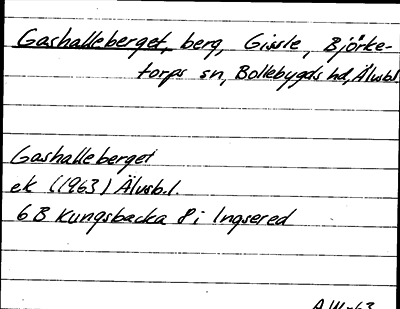 Gashalleberget, berg, Gissle, Björke-
torps sn, Bollebygds hd, Älvsb.l.
Gashalleberget
ek (1963) Älvsb.l.
6B Kungsbacka 8i Ingsered